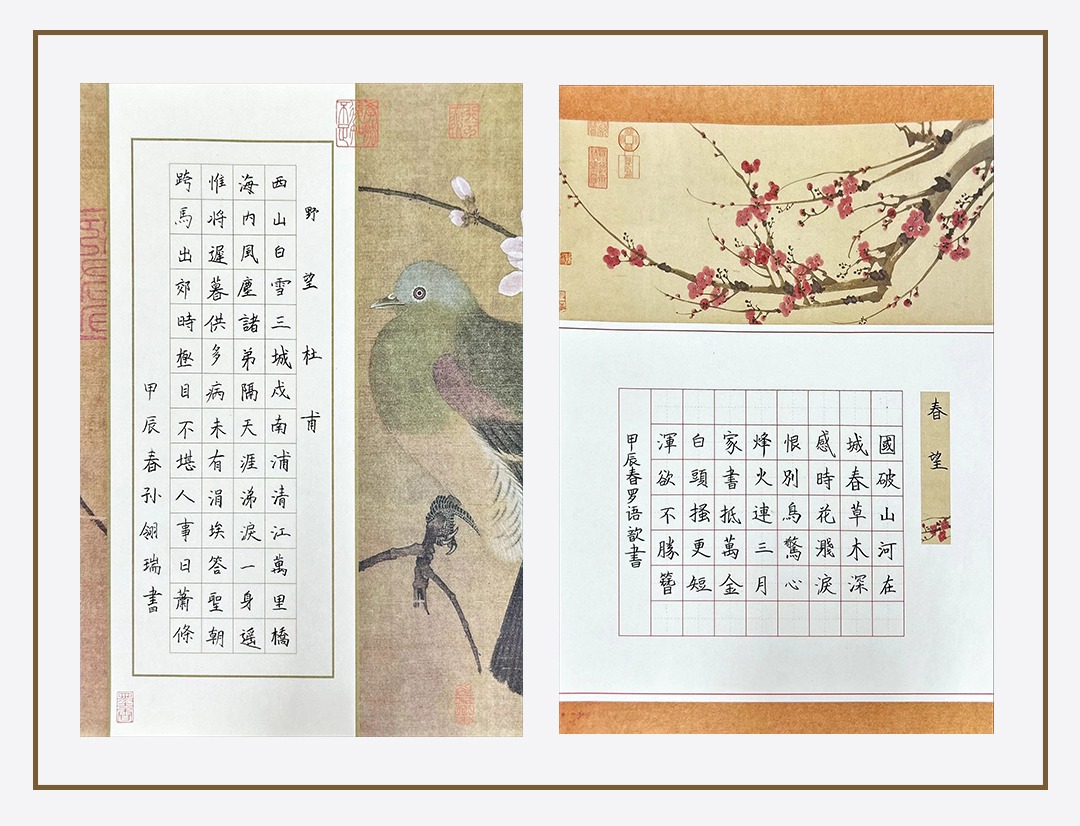 野望 杜甫
西山白雪三城戍南浦清江萬里橋
海内風塵諸弟隔天涯涕淚一身遥
惟将遲暮供多病未有涓埃答聖朝
跨馬出郊時極目不堪人事日蕭條
甲辰春孙翎瑞書
春望
國破山河在
城春草木深
感時花濺淚
恨別鳥驚心
烽火連三月
家書抵萬金
白頭搔更短
渾欲不勝簪
甲辰春罗语歆書